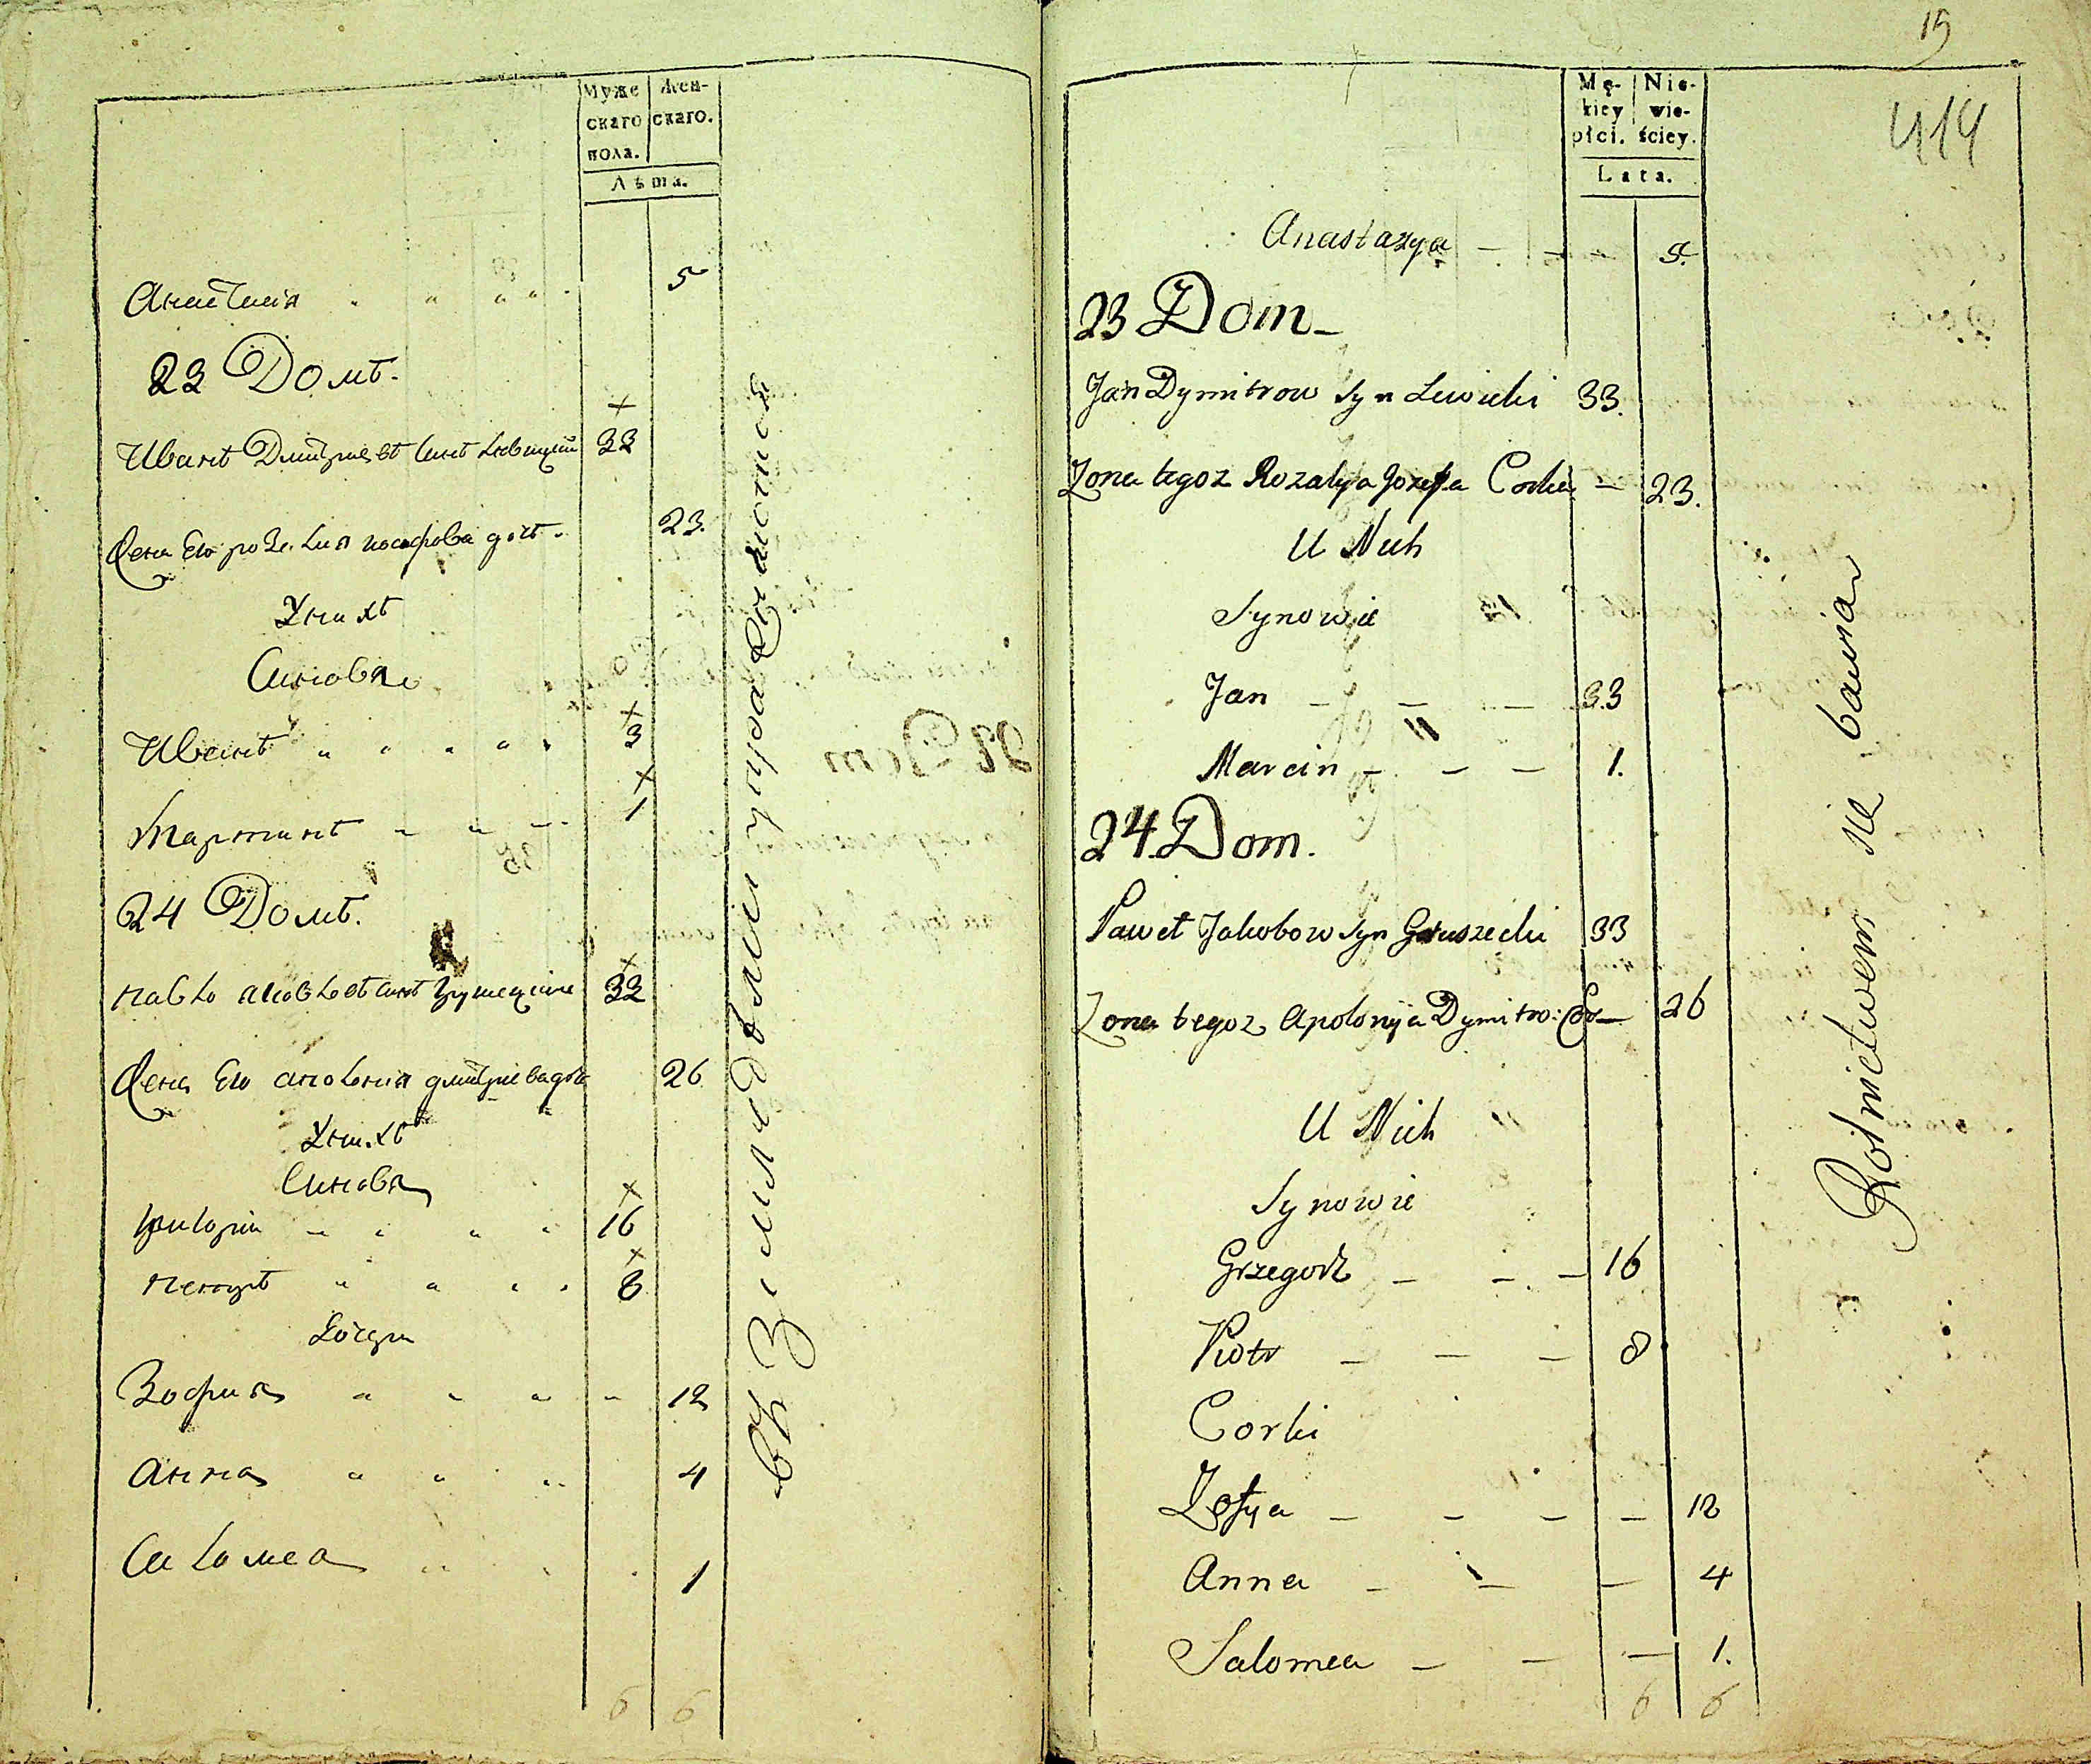 Муже
скаго
пола.
Жен-
скаго.
Лѣта.
Анастасія 5
23 Домъ.
Иванъ Дмитріевъ сынъ Левицкій 33
Жена Его розалия иосифова дочь 23.
У нихъ
Синовя
Иванъ 3
Мартинъ 1
24 Домъ.
павло яковлевъ синъ 33
Жена Его аполония дмитріева доч 26
У нихъ
Синовя
16
петръ 8
Дочери
Зофия 12
Анна 4
Саломеа 1
6 6
22 Dom
15
414
Mę-
kiey
płci.
Nie-
wie-
ściey.
Lata.
Anastazya - - - 5.
23 Dom -
Jan Dymitrow Syn Lewicki 33.
Zona tegoz Rozalya Jozefa Corka - 23.
U Nich
Synowie
Jan - - - 3.3
Marcin - - - 1.
24. Dom.
Paweł Jakobow Syn Gruszecki 33
Zona tegoz Apolonija Dymitro: Cor- 26
U Nich
Synowie
Grzegorz - - - 16
Piotr - - - 8
Corki
Zofya - - - - 12
Anna - - - 4
Salomea - - - 1.
6 6
Rolnictwem się bawia